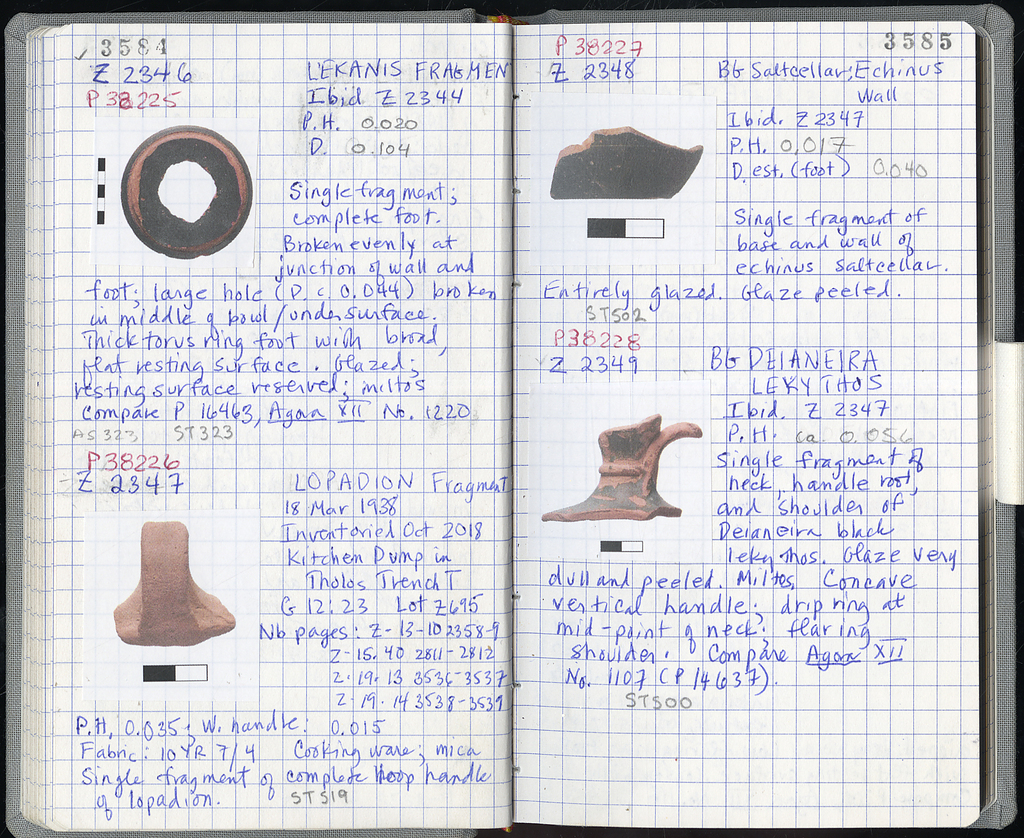 3584
Z 2346
P 38225
LEKANIS FRAGMEN
Ibid Z 2344
P.H. 0.020
D. 0.104
Single fragment;
complete foot.
Broken evenly at
junction of wall and
foot; large hole (P. c. 0.044) broken
in middle of bowl/undersurface.
Thick torus ring foot with broad,
flat resting surface. Glazed;
resting surface reserved; miltos
compare P 16463, Agora XII No. 1220
AS 323 ST323
P38226
Z 2347
LOPADION Fragment
18 Mar 1938
Inventoried Oct 2018
Kitchen Dump in
Tholos Trench T
G 12:23 Lot Z695
Nb pages: Z-13-10 2358-9
Z-15.40 2811-2812
Z.19.13 3536-3537
Z.19.14 3538-3539
P.H, 0.035; W. handle: 0.015
Fabric: 10 YR 7/4 Cooking ware; mica
Single fragment of complete hoop handle
of lopadion.
ST519
3585
P 38227
Z 2348
BG Saltcellar; Echinus
Wall
Ibid. Z 2347
P.H. 0.017
D. est. (foot) 0.040
Single fragment of
base and wall of
echinus saltcellar.
Entirely glazed. Glaze peeled.
ST502
P38228
Z 2349
BG DEIANEIRA
LEKYTHOS
Ibid. Z 2347
P.H. ca. 0.056
Single fragment of
neck, handle root,
and shoulder of
Deianeira black
lekythos. Glaze very
dull and peeled. Miltos, Concave
vertical handle; drip ring at
mid-point of neck; flaring
shoulder. Compare Agora XII
No. 1107 (P 14637).
ST500